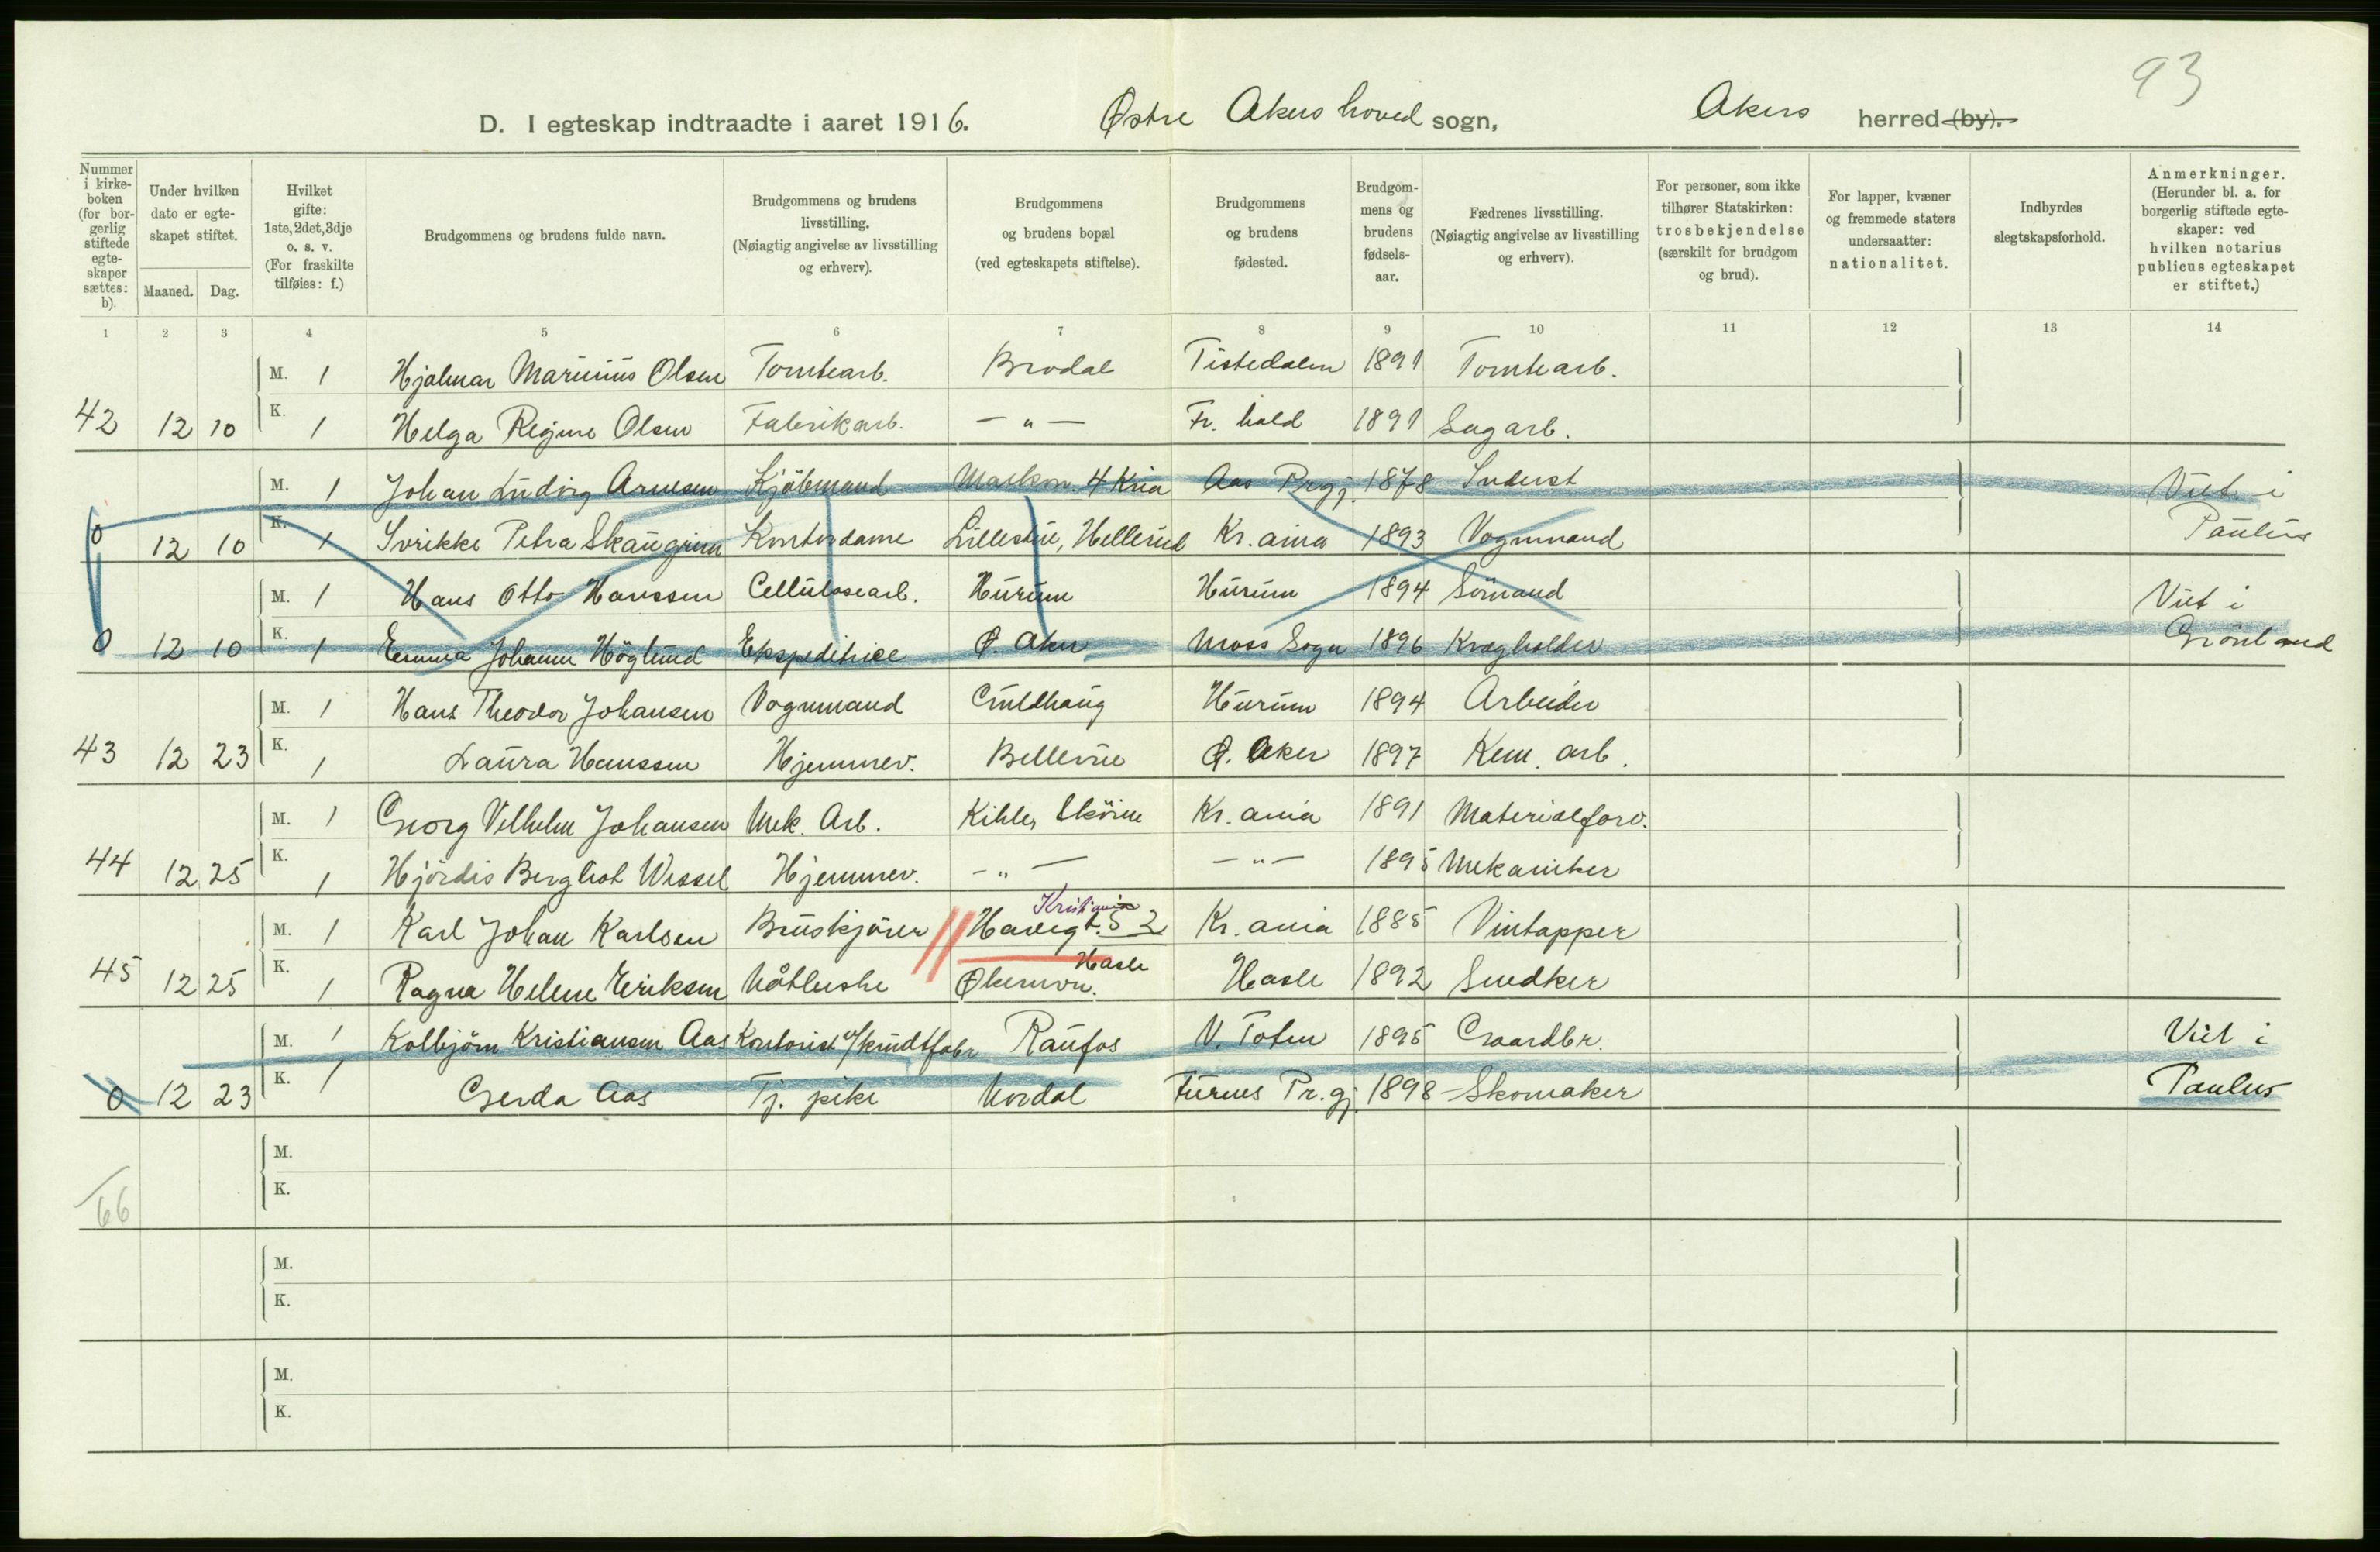 93
D. I egteskap indtraadte i aaret 1916. Østre Akers hoved sogn, Akers herred (by).
Nummer i kirkeboken (for borgerlig stiftede egteskaper sættes: b). Under hvilken dato er egteskapet stiftet. Maaned. Dag. Hvilket gifte: 1ste, 2det, 3dje o. s. v. (For fraskilte tilføies: f.) Brudgommens og brudens fulde navn. Brudgommens og brudens livsstilling. (Nøiagtig angivelse av livsstilling og erhverv). Brudgommens og brudens bopæl (ved egteskapets stiftelse). Brudgommens og brudens fødested. Brudgommens og brudens fødselsaar. Fædrenes livsstilling. (Nøiagtig angivelse av livsstilling og erhverv). For personer, som ikke tilhører Statskirken: trosbekjendelse (særskilt for brudgom og brud). For lapper, kvæner og fremmede staters undersaatter: nationalitet. Indbyrdes slegtskapsforhold. Anmerkninger. (Herunder bl. a. for borgerlig stiftede egteskaper: ved hvilken notarius publicus egteskapet er stiftet.)
1 2 3 4 5 6 7 8 9 10 11 12 13 14
M. 1 Hjalmar Marinius Olsen Tomtearb. Brodal Tistedalen 1891 Tomtearb.
42 12 10 K. 1 Helga Regine Olsen Fabrikarb. — " — Fr. hald 1891 Sagarb.
M. 1 Johan Ludvig Arnesen Kjöbmand 4 Kria Aas Prgj. 1878 Inderst Viet i
0 12 10 K. 1 Petra Skaugrim Kontordame Hellerud Kr.ania 1893 Vognmand Paulus
M. 1 Hans Otto Hanssen Cellulosearb. Hurum Hurum 1894 Sömand Viet i
0 12 10 K. 1 Emma Johanne Höglund Ekspeditrice Ø. Aker Moss Sogn 1896 Grönland
M. 1 Hans Theodor Johansen Vognmand Hurum 1894 Arbeider
43 12 23 K. 1 Laura Hanssen Hjemmev. Bellevue Ø. Aker 1897 Kem. arb.
M. 1 Georg Vilhelm Johansen Mek. Arb. Kr.ania 1891 Materialforv.
44 12 25 K. 1 Hjördis Bergliot Wessel Hjemmev. — " — — " — 1895 Mekaniker
Kristiania
M. 1 Karl Johan Karlsen Bruskjörer Kr.ania 1885 Vintapper
Hasle
45 12 25 K. 1 Ragna Helene Eriksen Økernvn. Hasle 1892 Snedker
M. 1 Kolbjörn Kristiansen Aas Kontorist Raufos V. Toten 1895 Gaardbr. Viet i
0 12 23 K. 1 Gerda Aas Tj. pike Nordal Furnes Pr.gj. 1898 Skomaker Paulus
M.
K.
66
M.
K.
M.
K.